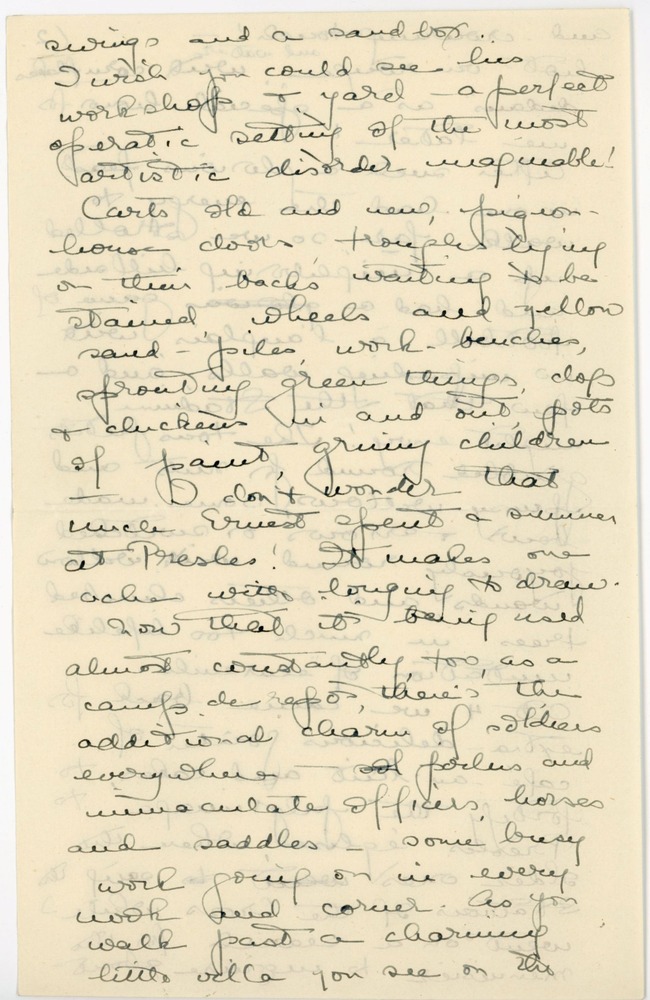 swings and a sandbox.
I wish you could see his
workshop & yard - a perfect
operatic setting of the most
artistic disorder imaginable!
Carts old and new, pigeon-
house doors, troughs lying
on their backs waiting to be
stained, wheels and yellow
sand-piles, work-benches,
sprouting green things, dogs
& chickens in and out, pots
of paint, grimy children
- I don't wonder that
Uncle Ernest spent a summer
at Presles! It makes one
ache with longing to draw.
Now that it's being used
almost constantly, too, as a
camp de repos, there's the
additional charm of soldiers
everywhere - of poilus and
immaculate officers, horses
and saddles - some busy
work going on in every
nook and corner. As you
walk past a charming
little villa you see on the